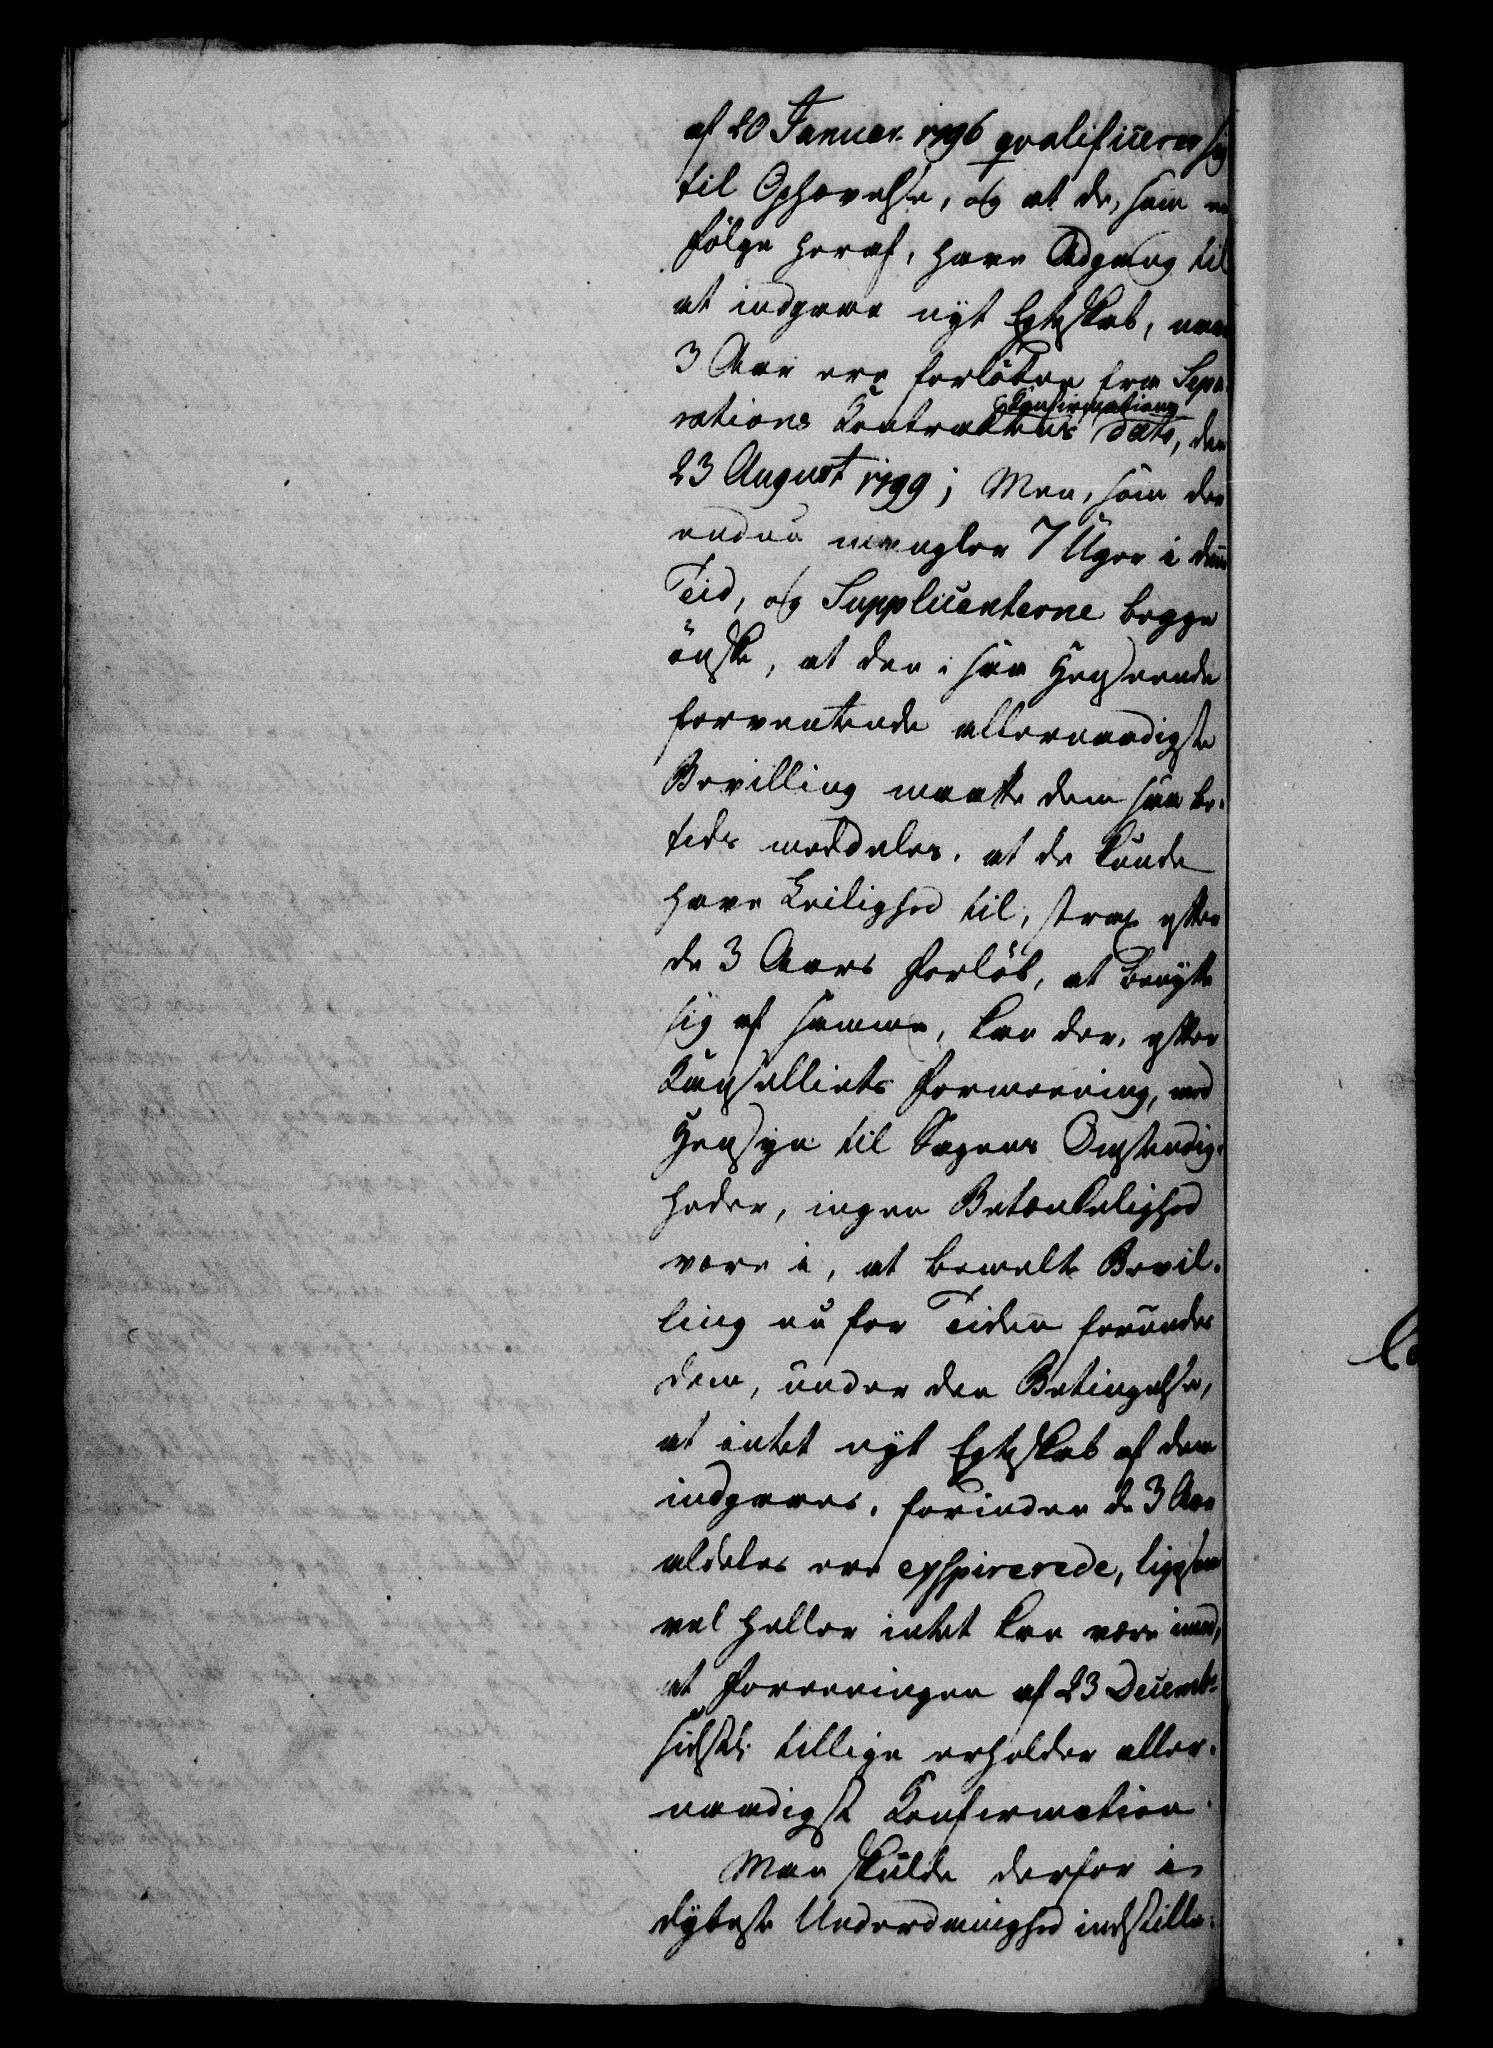 af 20 Januar 1796 qvalificerer sig
til Ophævelse, og at de, som en
Følge heraf, have Adgang til
at indgaae nyt Egteskab, naar
3 Aar ere forløbne fra Sepa-
rations Kontraktens Confirmations Dato, den
23 August 1799; Men, som der
endnu mangler 7 Uger i denne
Tid, og Supplicanterne begge
ønske, at den i saa Henseende
forventende allernaadigste
Bevilling maatte dem saa be-
tids meddeles, at de kunde
have Leilighed til, strax efter
de 3 Aars Forløb, at benytte
sig af samme, kan der, efter
Kancelliets Formeening, med
Hensyn til Sagens Omstændig-
heder, ingen Betænkelighed
være i, at bemelte Bevil-
ling nu for Tiden forundes
dem, under den Betingelse,
at intet nyt Egteskab af dem
indgaaes, forinden de 3 Aar
aldeles ere exspirerede, ligesom
vel heller intet kan være imod,
at Foreeningen af 23 Decembr
sidstl. tillige erholder aller-
naadigst Konfirmation.
Man skulde derfor i
dybeste Underdanighed indstille: